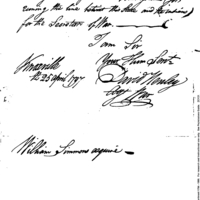 running the line between the State and the indians)
for the Secretary of War
I am Sir
Your Hum Servt
David Henley
Agt War
Knoxville
the 25 April 1797
William Simmons esquire